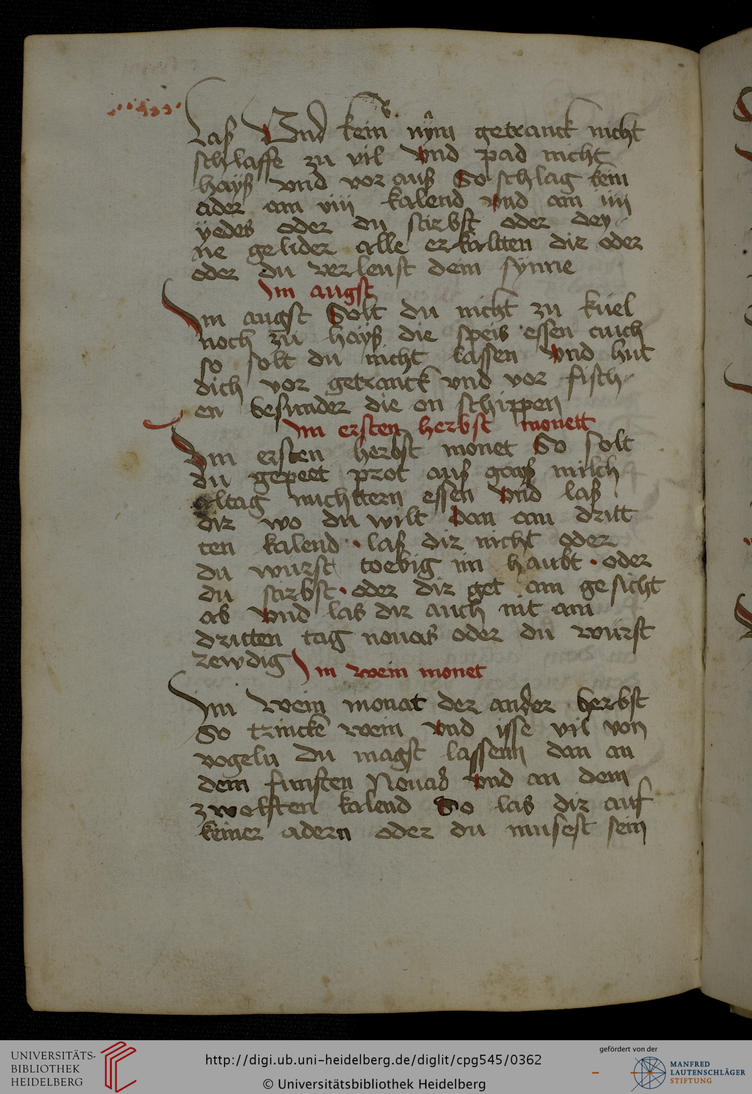 Las Vnd kein nym getranck nicht
schlaffe zu vil vnd pad nicht
hayß vnd vor auß So schlag kein
ader am viii kalend vnd am iiii
ydes oder du stirbst oder dey
ne gelider alle erkaltten dir oder
oder du verleust dein synne
Im augst
Im augst Solt du nicht zu küel
noch zu hayß die speis essen auch
so solt du nicht lassen vnd hut
dich vor getranck vnd vor fisch
en besunder die on schippen
Im ersten herbst monett
Im ersten herbst monet So solt
du gepeet prot auß gaiß milch
altag nuchttern essen vnd laß
dir wo du wilt dan am dritt
ten kalend · laß dir nicht oder
du wurst toebig im haubt · oder
du stirbst · oder dir get am gesicht
ab vnd las dir auch nit am
dritten tag nonas oder du wurst
zewdig
Im wein monet
Im wein monat der ander herbst
So trincke wein vnd isse vil von
vogeln du magst lassenn dan an
dem funften Nonas vnd an dem
zwolften kalend So las dir auf
keiner adern oder du musest sein
UNIVERSITÄTS-
BIBLIOTHEK
HEIDELBERG
http://digi.ub.uni-heidelberg.de/diglit/cpg545/0362
© Universitätsbibliothek Heidelberg
gefördert von der
MANFRED
LAUTENSCHLÄGER
STIFTUNG